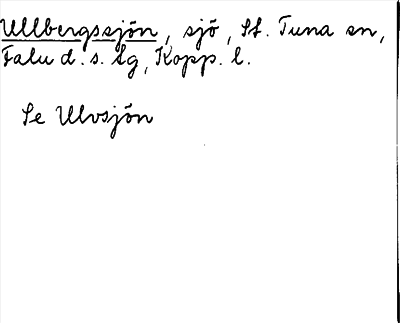 Ullbergssjön, sjö, St. Tuna sn,
Falu d. s. lg, Kopp. l.
Se Ulvsjön